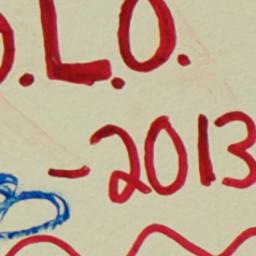 .L.O.
-2013